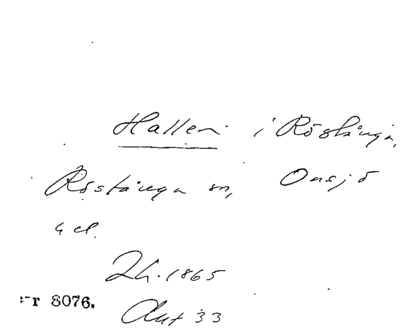 Hallen i Röstånga,
Röstånga sn, Onsjö
hd.
Lh. 1865
Aut 33
r 8076.